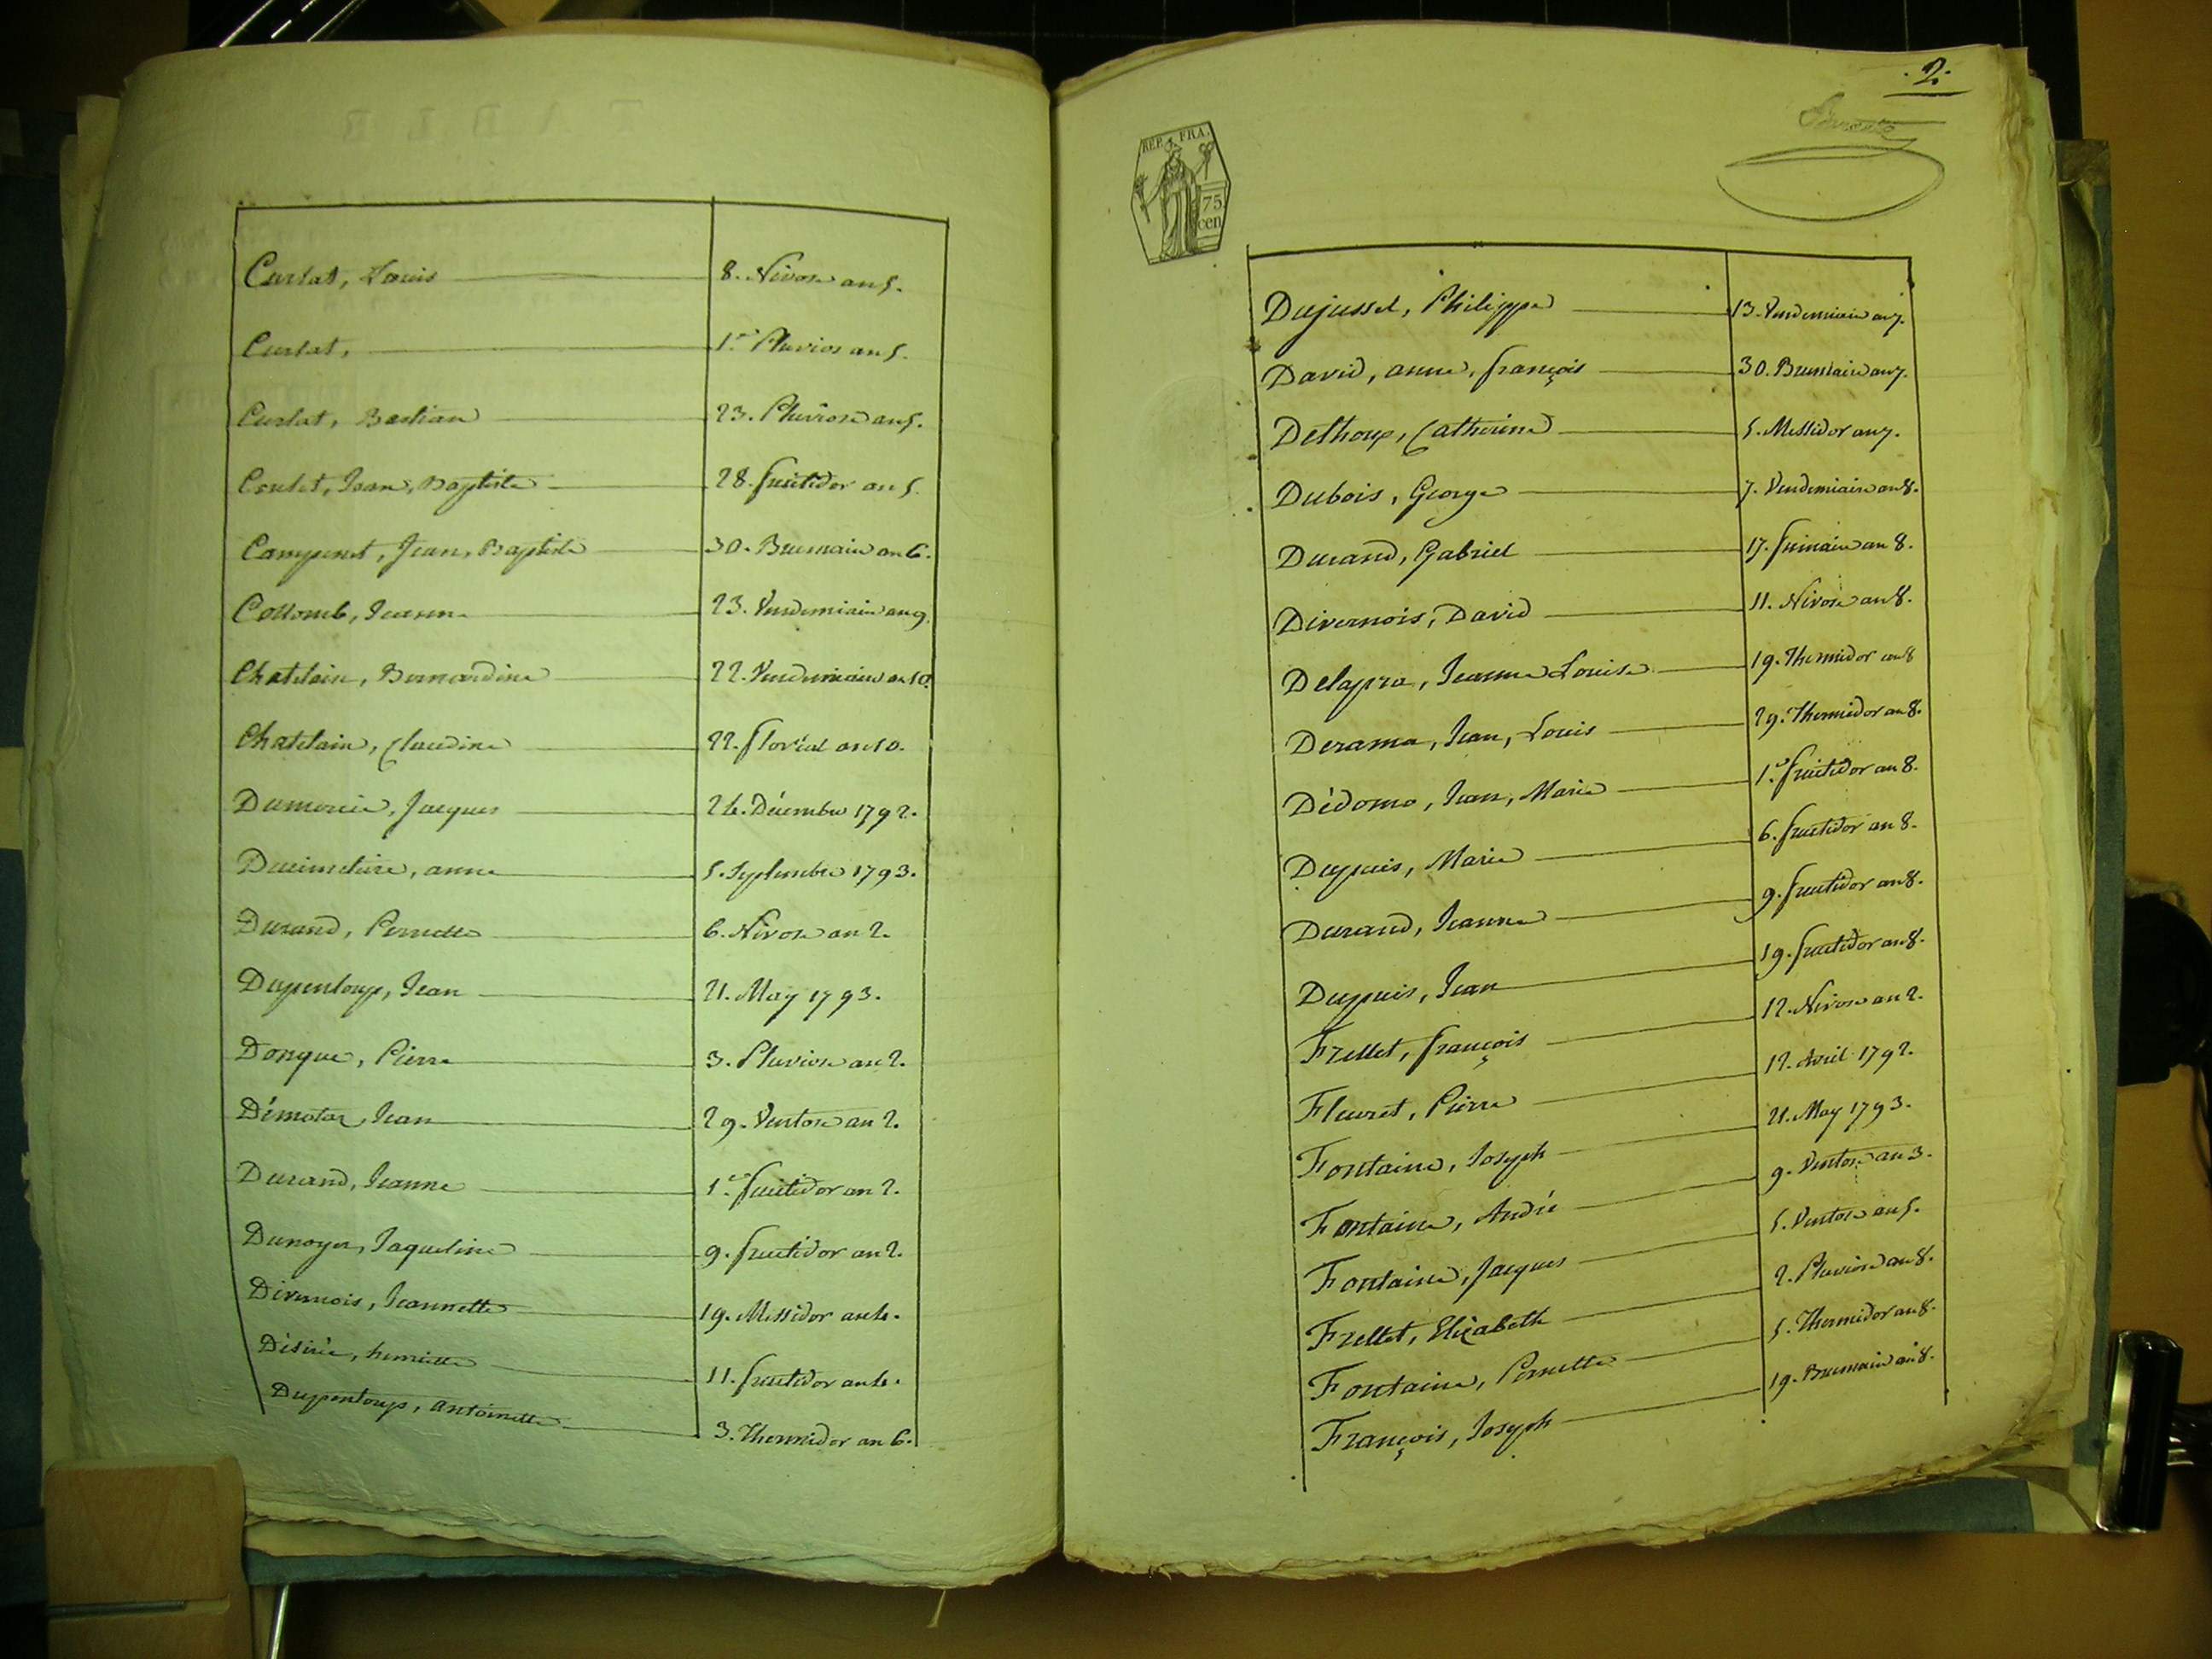 Curlat, Louis 8. Nivose an 5.
Curlat, 1.er Pluvios an 5.
Curlat, Bastian 23. Pluviose an 5.
Coulet, Jean, Baptiste 28. fructidor an 5.
Campenet, Jean, Baptiste 30. Brumaire an 6.
Collomb, Jeanne 23. Vendemiaire an 9.
Chatelain, Bernardine 22. Vendemiaire an 10.
Chatelain, Claudine 22. floréal an 10.
Dumorié, Jacques 24. Décembre 1792.
Ducimetière, anne 5. Septembre 1793.
Durand, Pernette 6. Nivose an 2.
Dupenloup, Jean 21. May 1793.
Donque, Pierre 3. Pluviose an 2.
Démotaz, Jean 29. Ventose an 2.
Durand, Jeanne 1.er fructidor an 2.
Dunoyer, Jaqueline 9. fructidor an 2.
Divernois, Jeannette 19. Messidor an 4.
Désirée, henriette 11. fructidor an 4.
Dupenloup, antoinette 3. Thermidor an 6.
.2.
REP. FRA.
75
cen
Dujussel, Philippe 13. Vendemiaire an 7.
David, anne, françois 30. Brumaire an 7.
Delhoup, Catherine 5. Messidor an 7.
Dubois, George 7. Vendemiaire an 8.
Durand, Gabriel 17. frimaire an 8.
Divernois, David 11. Nivose an 8.
Delapra, Jeanne Louise 19. Thermidor an 8
Derama, Jean, Louis 29. Thermidor an 8.
Dédomo, Jean, Marie 1.er fructidor an 8.
Dupuis, Marie 6. fructidor an 8.
Durand, Jeanne 9. fructidor an 8.
Dupuis, Jean 19. fructidor an 8.
Frellet, françois 12. Nivose an 2.
Fleuret, Pierre 12. Avril 1792.
Fontaine, Joseph 21. May 1793.
Fontaine, André 9. Ventose an 3.
Fontaine, Jacques 5. Ventose an 5.
Frellet, Elizabeth 2. Pluviose an 8.
Fontaine, Pernette 5. Thermidor an 8.
François, Joseph 19. Brumaire an 8.